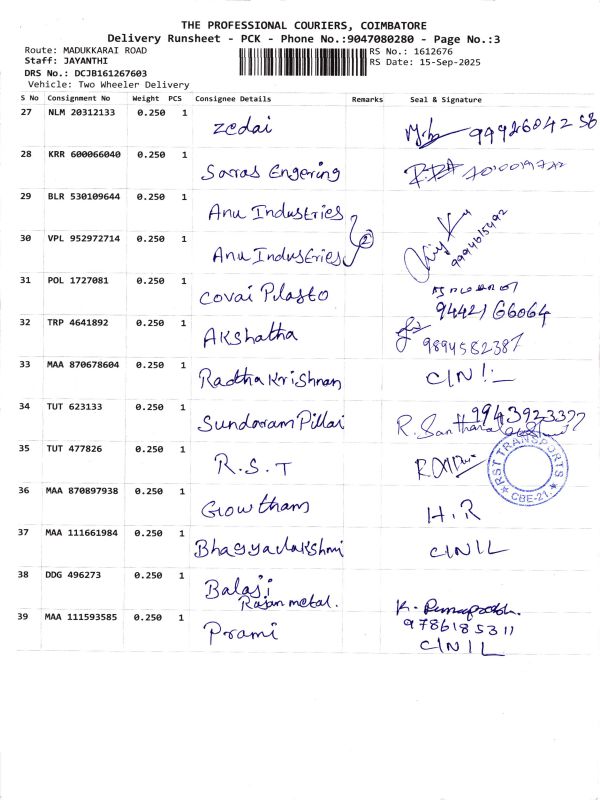 THE PROFESSIONAL COURIERS, COIMBATORE
Delivery Runsheet - PCK - Phone No.:9047080280 - Page No.:3
Route: MADUKKARAI ROAD RS No.: 1612676
Staff: JAYANTHI RS Date: 15-Sep-2025
DRS No.: DCJB161267603
Vehicle: Two Wheeler Delivery
S No Consignment No Weight PCS Consignee Details Remarks Seal & Signature
27 NLM 20312133 0.250 1 Zedai 9992604258
28 KRR 600066040 0.250 1 Saras Engering
29 BLR 530109644 0.250 1 Anu Industries
30 VPL 952972714 0.250 1 Anu Industries 2 9994615492
31 POL 1727081 0.250 1 Covai Plasto
9442166064
32 TRP 4641892 0.250 1 Akshatha
9894582387
33 MAA 870678604 0.250 1 Radha Krishnan C/N!-
34 TUT 623133 0.250 1 Sundaram Pillai R. 9943923377
35 TUT 477826 0.250 1 R.S.T
RST TRANSPORTS
CBE-21.
36 MAA 870897938 0.250 1 Gowtham H.R
37 MAA 111661984 0.250 1 Bhagyalakshmi C/N IL
38 DDG 496273 0.250 1 Balaji
Rajan metal. K.
9786185311
39 MAA 111593585 0.250 1 Prami C/N IL